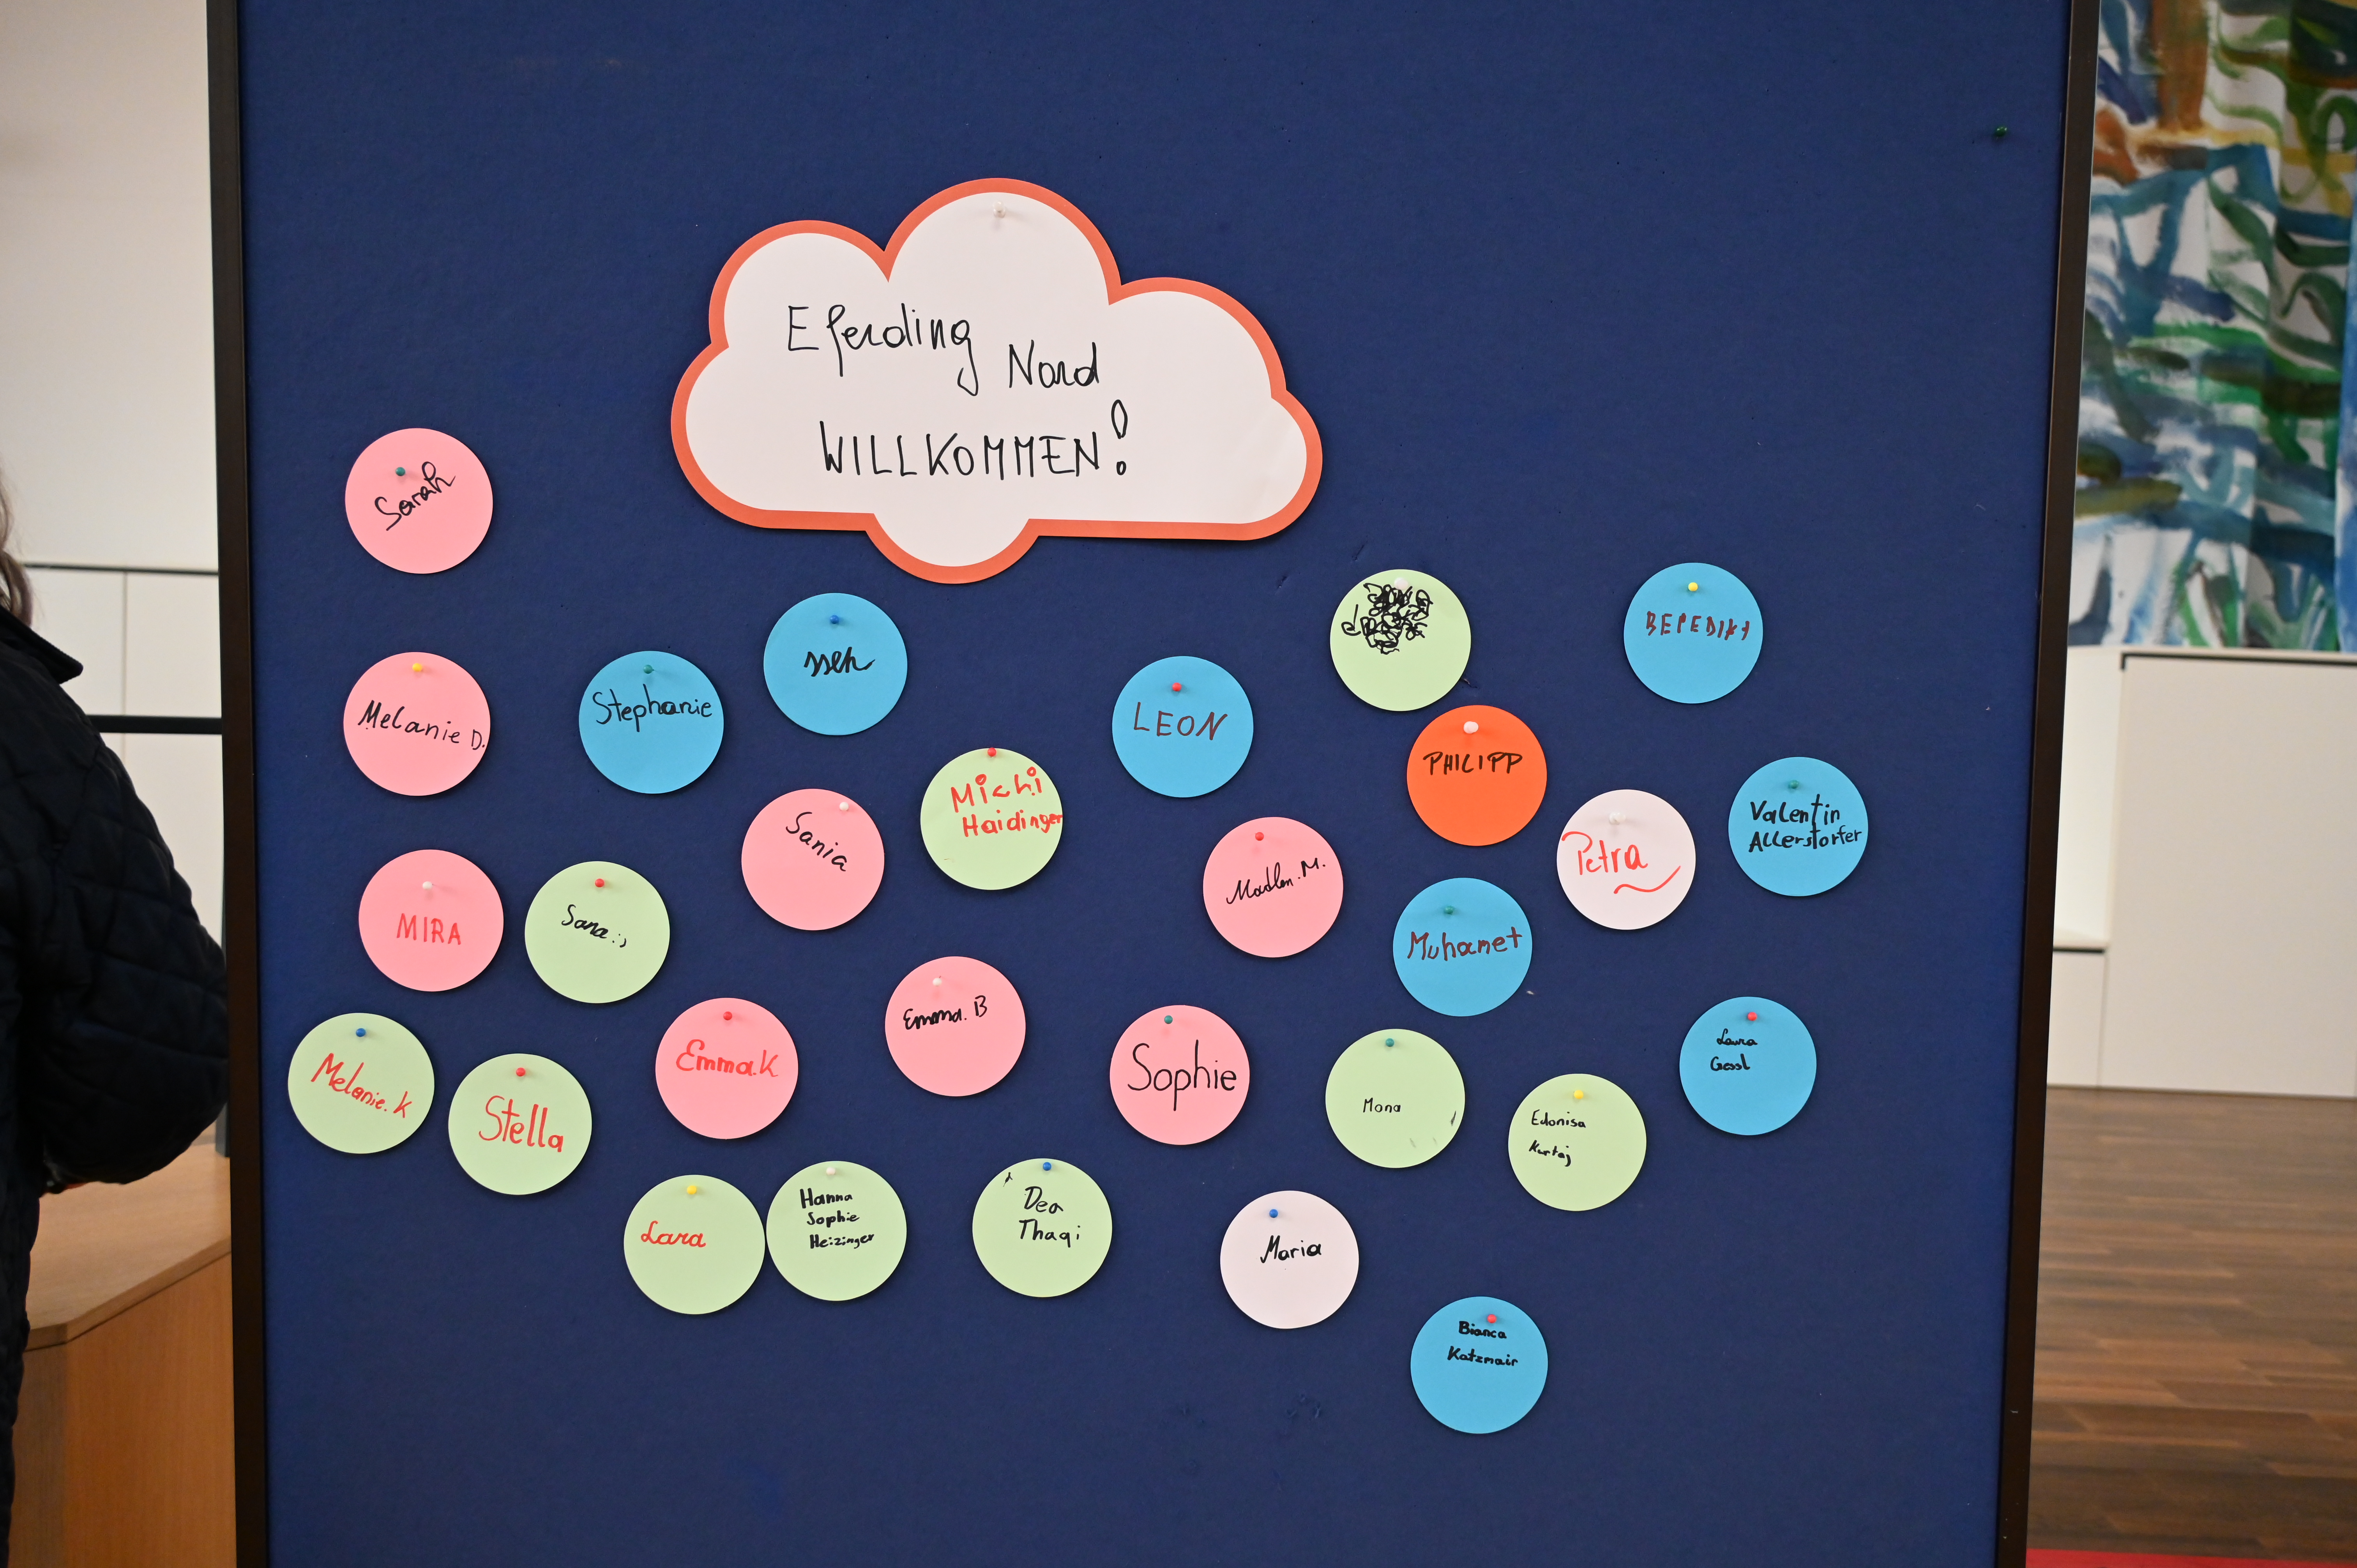 Eferding Nord
WILLKOMMEN!
Sarah
Melanie D.
Stephanie
LEON
PHILIPP
Michi
Haidinger
Sania
Madlen. M.
Petra
Valentin
Allerstorfer
MIRA
Sana :)
Muhamet
Emma. B
Emma.K
Sophie
Mona
Laura
Gessl
Melanie. K
Stella
Edonisa
Kurtaj
Lara
Hanna
Sophie
Heizinger
Dea
Thaqi
Maria
Bianca
Katzmair